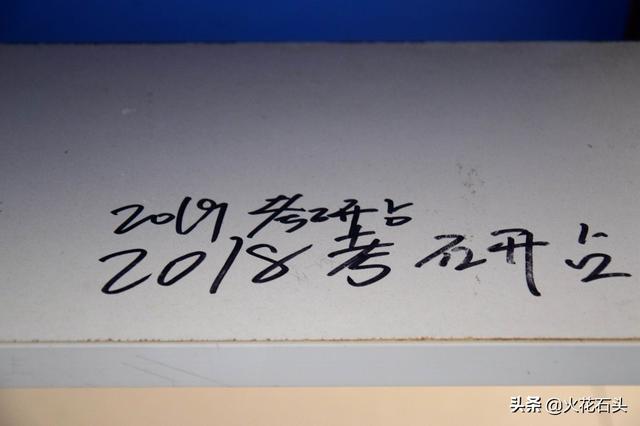 2019 考研占
2018 考研占
头条 @火花石头